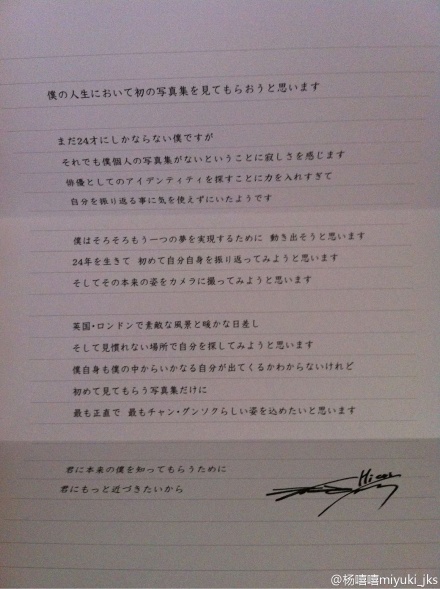 僕の人生において初の写真集を見てもらおうと思います
まだ24才にしかならない僕ですが
それでも僕個人の写真集がないということに寂しさを感じます
俳優としてのアイデンティティを探すことに力を入れすぎて
自分を振り返る事に気を使えずにいたようです
僕はそろそろもう一つの夢を実現するために 動き出そうと思います
24年を生きて 初めて自分自身を振り返ってみようと思います
そしてその本来の姿をカメラに撮ってみようと思います
英国・ロンドンで素敵な風景と暖かな日差し
そして見慣れない場所で自分を探してみようと思います
僕自身も僕の中からいかなる自分が出てくるかわからないけれど
初めて見てもらう写真集だけに
最も正直で 最もチャン・グンソクらしい姿を込めたいと思います
君に本来の僕を知ってもらうために
君にもっと近づきたいから
@杨嘻嘻miyuki_jks